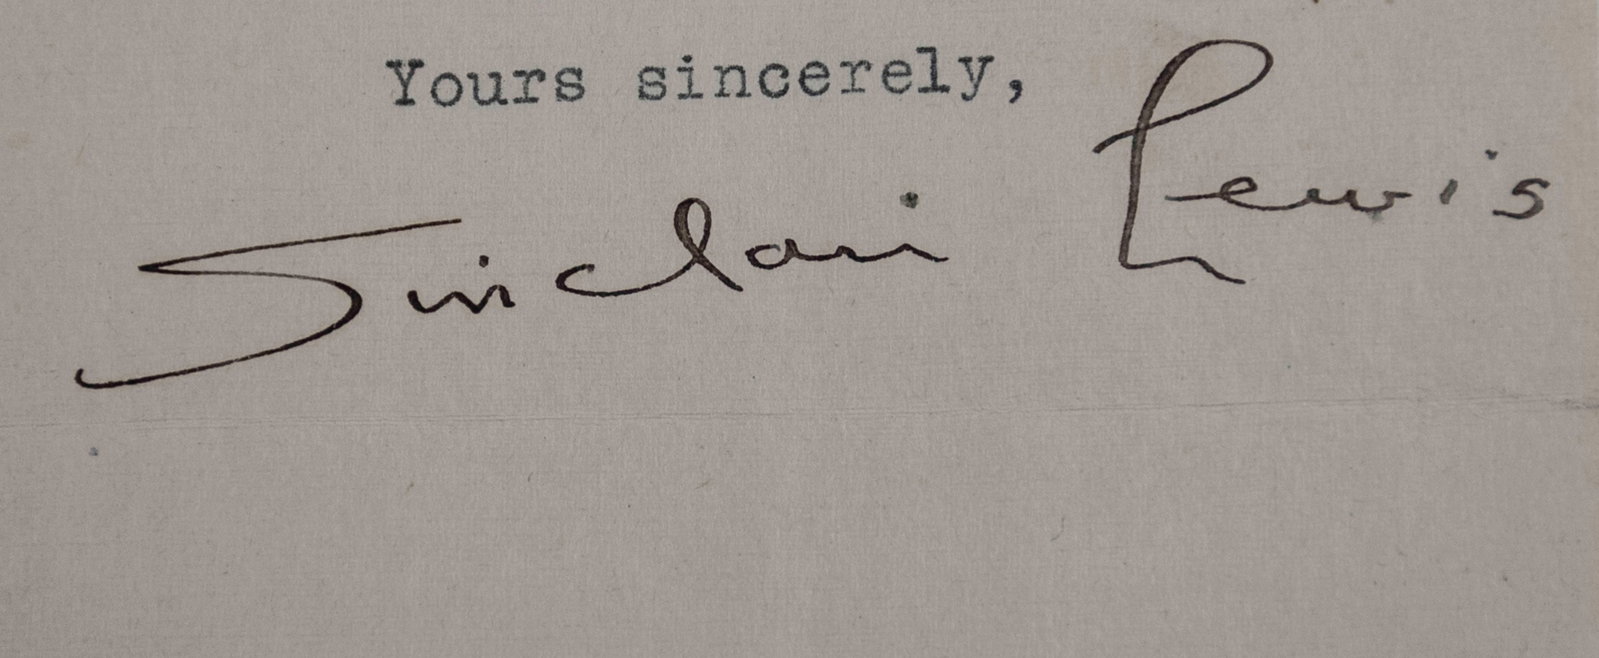 Yours sincerely,
Sinclair Lewis